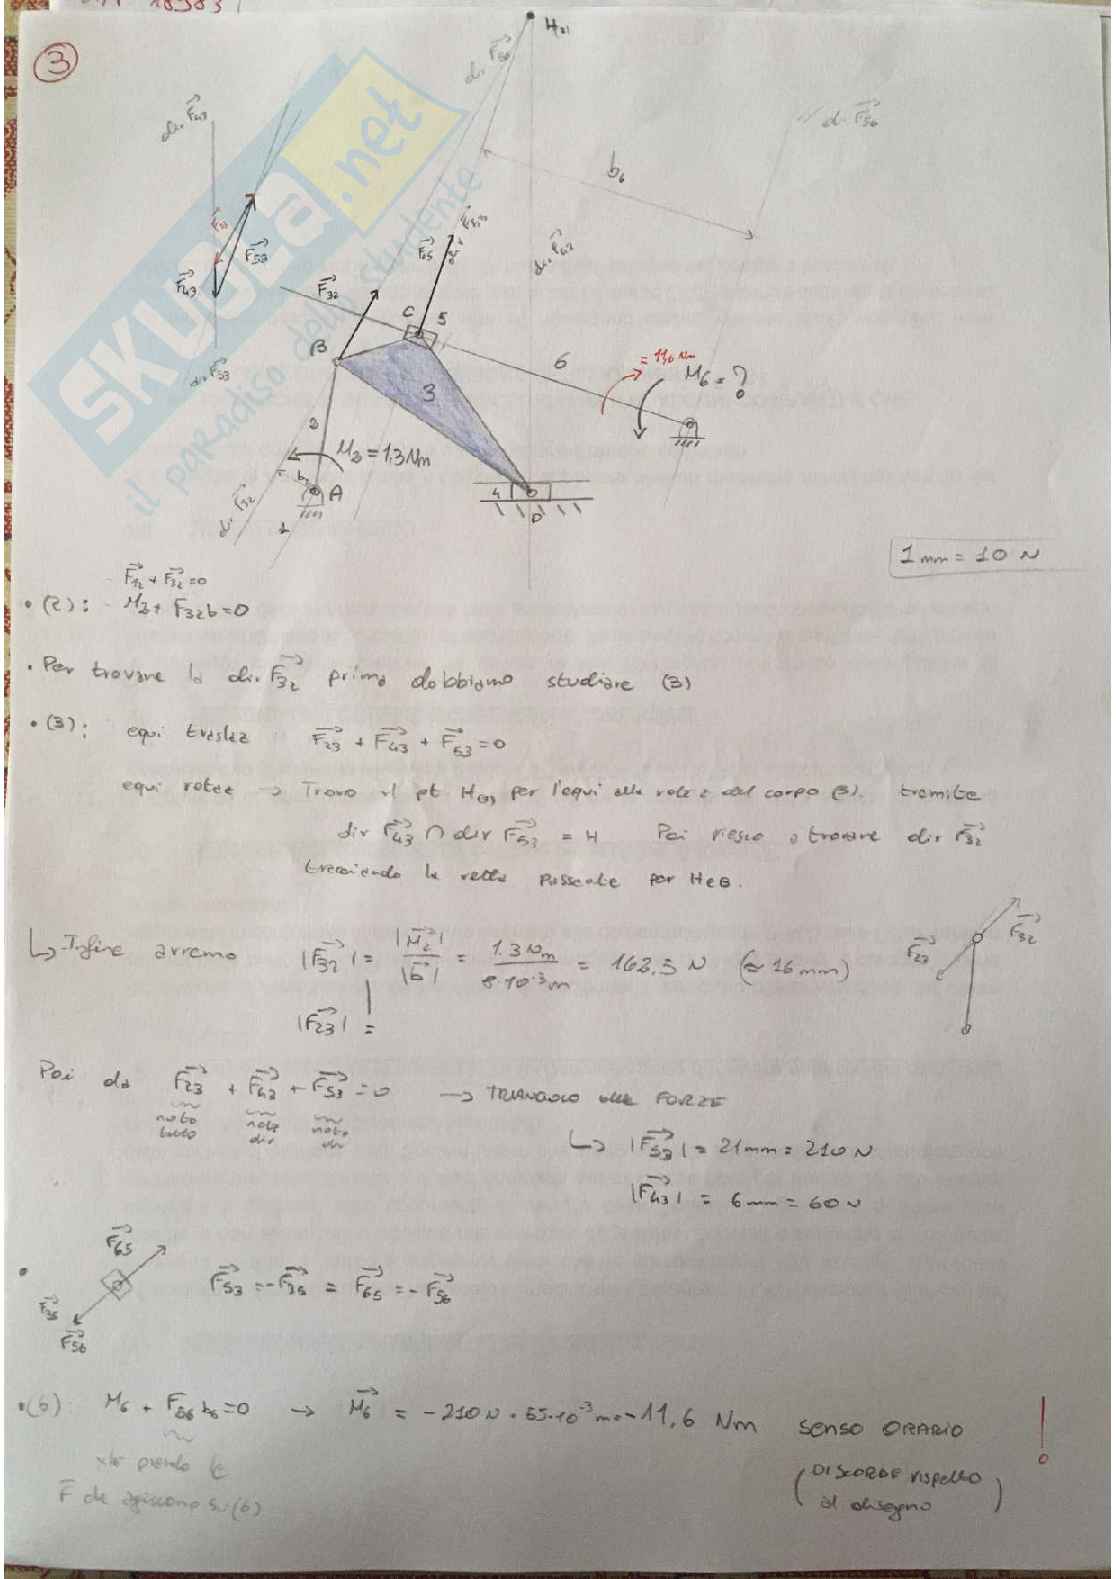 3
H(3)
dir F53
dir F43
// dir F56
b6
F53
F43
F53
F65
F53
dir F43
dir F53
F32
C 5
B
6
= 11,6 Nm
M6 = ?
3
2
M2 = 1.3 Nm
b2
A
dir F32
4
D
1
1 mm = 10 N
F12 + F32 = 0
• (2): M2 + F32 b = 0
• Per trovare la dir F32 prima dobbiamo studiare (3)
• (3): equi traslaz F23 + F43 + F53 = 0
equi rotaz → Trovo il pt H(3) per l'equi alla rotaz del corpo (3). tramite
dir F43 ∩ dir F53 = H Poi riesco a trovare dir F32
tracciando la retta passante per H e B.
↳ Infine avremo |F32| = |M2| / |b| = 1.3 Nm / 8·10⁻³ m = 162,5 N (≈ 16 mm)
|F23| =
F23
F32
Poi da F23 + F43 + F53 = 0 → TRIANGOLO delle FORZE
noto tutto
nota dir
nota dir
↳ |F53| = 21 mm = 210 N
|F43| = 6 mm = 60 N
F65
• F53 = -F35 = F65 = -F56
F35
F56
• (6) M6 + F56 b6 = 0 → M6 = -210 N · 55·10⁻³ m = -11,6 Nm SENSO ORARIO !
prendo le
F che agiscono su (6)
(DISCORDE rispetto
al disegno)
SKUOLA.net
il paradiso dello studente